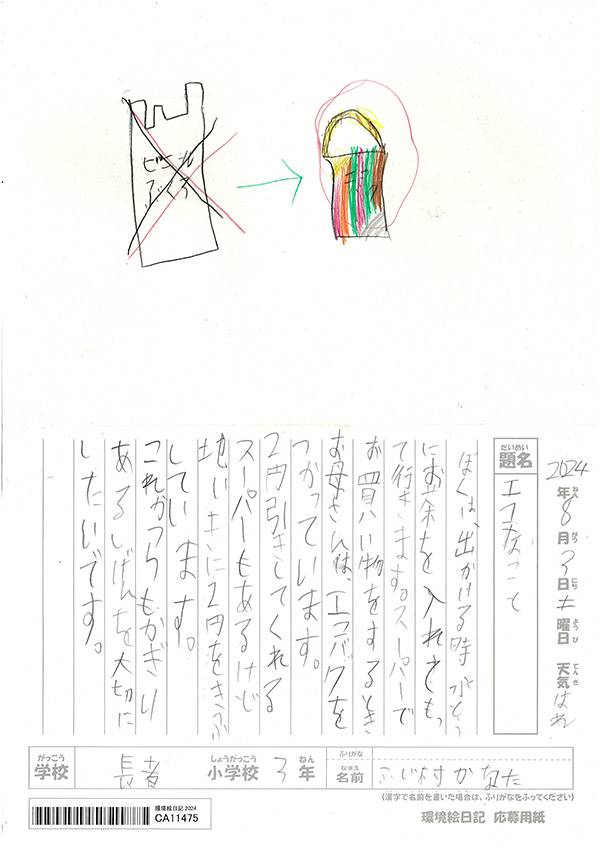 ビニール
ぶくろ
エコ
2024年8月3日土曜日 天気はれ
ねん がつ にち ようび てんき
だいめい
題名
エコなこと
ぼくは、出かける時水とう
にお茶を入れてもっ
て行きます。スーパーで
お買い物をするとき
お母さんは、エコバクを
つかっています。
2円引きしてくれる
スーパーもあるけど
地いきに2円をきふ
しています。
これからもかぎり
あるしげんを大切に
したいです。
がっこう
学校
長者
しょうがっこう
小学校
3
ねん
年
ふりがな
なまえ
名前
ふじ村かなた
(漢字で名前を書いた場合は、ふりがなをふってください)
環境絵日記 2024
CA11475
環境絵日記 応募用紙